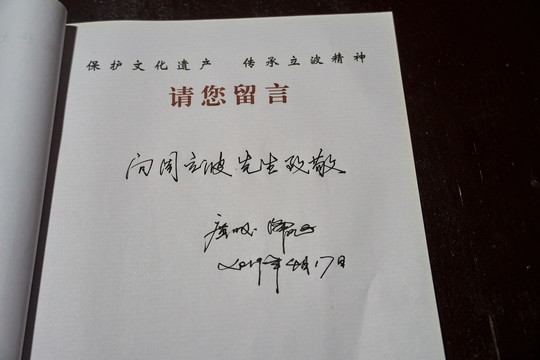 保护文化遗产 传承立波精神
请您留言
向周立波先生致敬
2019年4月17日